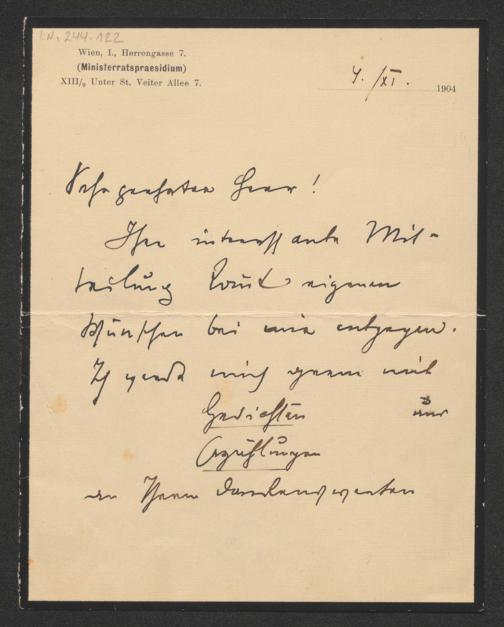 I.N. 244.122
Wien, I., Herrengasse 7.
(Ministerratspraesidium)
XIII/, Unter St. Veiter Allee 7.
4./XI. 1904
Sehr geehrter Herr!
Ihre interessante Mit-
teilung kommt eigenen
Wünschen bei mir entgegen.
Ich werde mich gerne mit
Gedichten
Erzählungen
an Ihrem